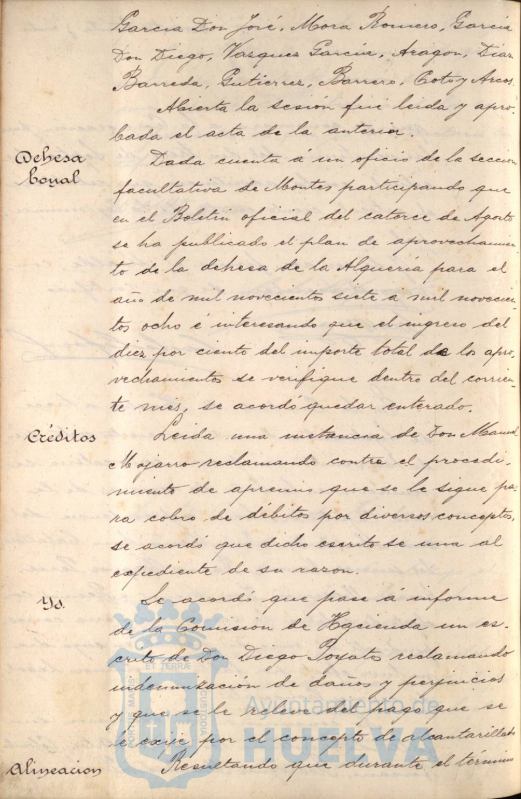 Garcia Don José, Mora Romero, Garcia
Don Diego, Vazques Garcia, Aragon, Diaz
Barreda, Gutierrez, Barrero, Coto y Arcos.
Abierta la sesión fué leida y apro-
bada el acta de la anterior.
Dehesa
boyal
Dada cuenta á un oficio de la seccion
facultativa de Montes participando que
en el Boletin oficial del catorce de Agosto
se ha publicado el plan de aprovechamien-
to de la dehesa de la Alqueria para el
año de mil novecientos siete a mil novecien-
tos ocho é interesando que el ingreso del
diez por ciento del importe total de los apro-
vechamientos se verifique dentro del corrien-
te mes, se acordó quedar enterado.
Créditos
Leida una instancia de Don Manuel
Mojarro reclamando contra el procedi-
miento de apremio que se le sigue pa-
ra cobro de débitos por diversos conceptos,
se acordó que dicho escrito se una al
expediente de su razon.
Yd.
Se acordó que pase á informe
de la Comision de Hacienda un es-
crito de Don Diego Poyato reclamando
indemnización de daños y perjuicios
y que se le releve del pago que se
le exije por el concepto de alcantarillado
Alineacion
Resultando que durante el término
PORTUS MARIS
ET TERRÆ
CUSTODIA
Ayuntamiento de
HUELVA